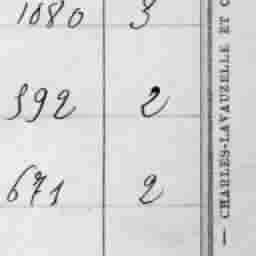 1080 3
592 2
671 2
— CHARLES-LAVAUZELLE ET C